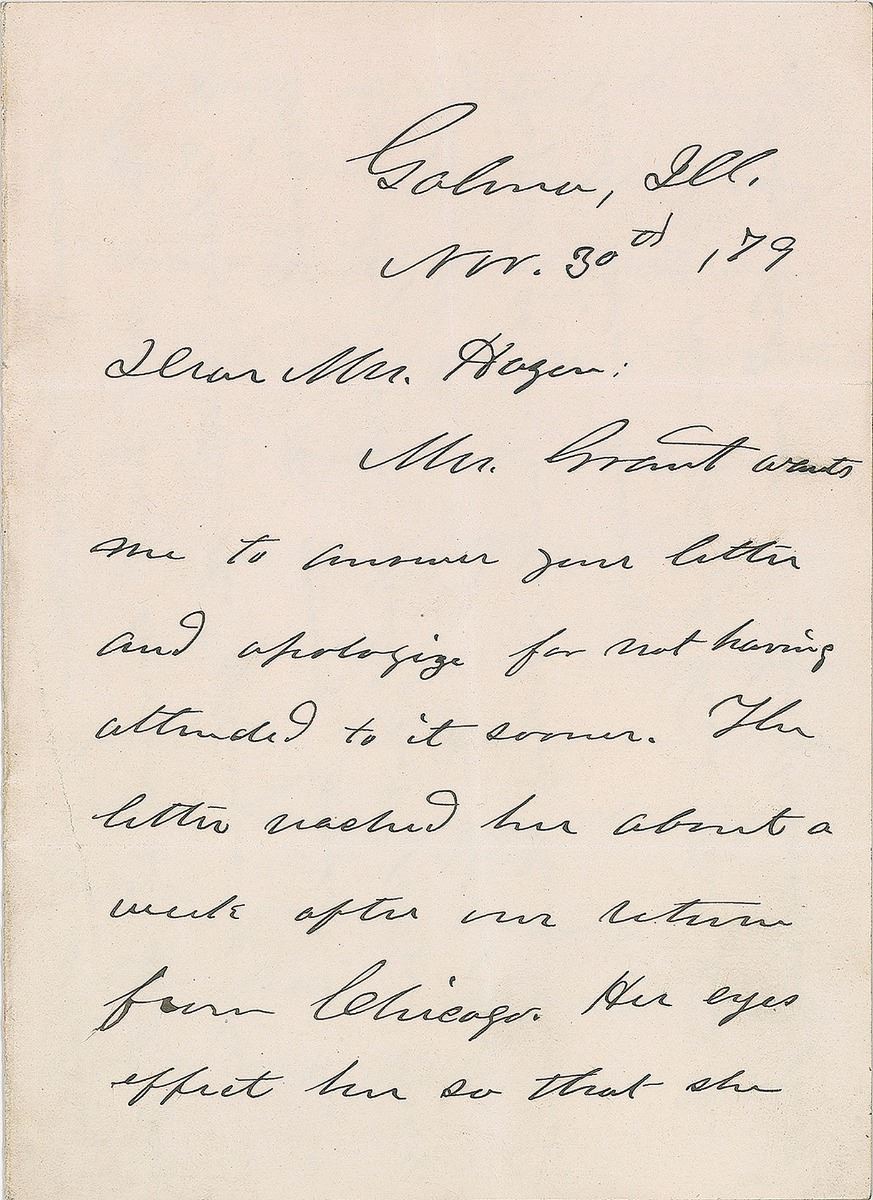 Galena, Ill.
Nov. 30th, 79
Dear Mrs. Hazen:
Mrs. Grant wants
me to answer your letter
and apologize for not having
attended to it sooner. The
letter reached her about a
week after our return
from Chicago. Her eyes
effect her so that she